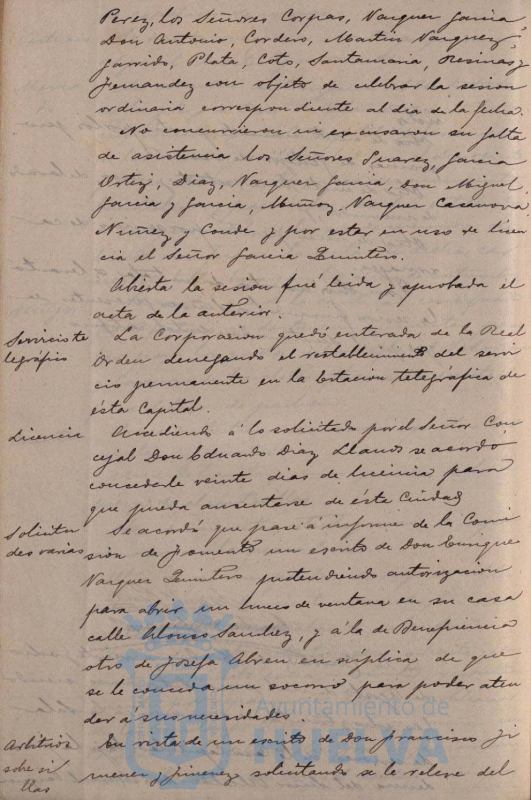 Perez, los Señores Corpas, Vazquez Garcia,
Don Antonio, Cordero, Martin Vazquez,
Garrido, Plata, Coto, Santamaria, Resinas y
Fernandez con objeto de celebrar la sesion
ordinaria correspondiente al dia de la fecha.
No concurrieron ni excusaron su falta
de asistencia los Señores Suarez, Garcia
Ortiz, Diaz, Vazquez Garcia, Don Miguel,
Garcia y Garcia, Muñoz, Vazquez Casanova
Nuñez y Conde y por estar en uso de licen
cia el Señor Garcia Quintero.
Abierta la sesion fué leida y aprobada el
acta de la anterior.
Servicio te
legráfico
La Corporacion quedó enterada de la Real
Orden denegando el restablecimiento del servi
cio permanente en la Estacion telegráfica de
ésta Capital.
Licencia
Accediendo á lo solicitado por el Señor Con
cejal Don Eduardo Diaz Llanos se acordo
concederle veinte dias de licencia para
que pueda ausentarse de ésta Ciudad
Solicitu
des varias
Se acordó que pase á informe de la Comi
sion de Fomento un escrito de Don Enrique
Vazquez Quintero pretendiendo autorizacion
para abrir un hueco de ventana en su casa
calle Alonso Sanchez, y á la de Beneficencia
otro de Josefa Abreu en súplica de que
se le conceda un socorro para poder aten
der á sus necesidades.
Arbitrios
sobre si
llas
En vista de un escrito de Don Francisco Ji
menez y Jimenez solicitando se le releve del
Ayuntamiento de
HUELVA